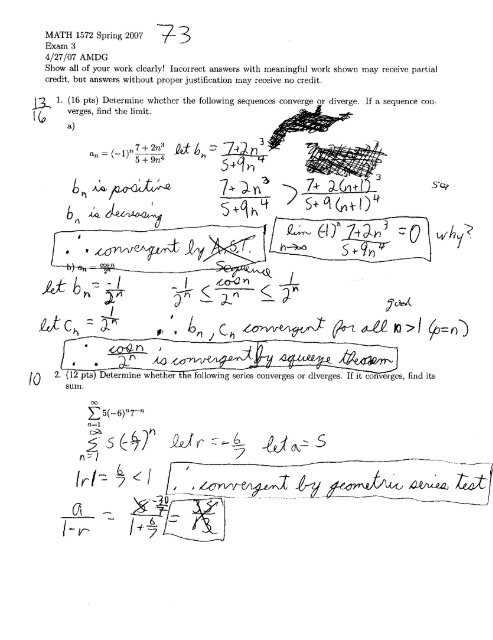 MATH 1572 Spring 2007 73
Exam 3
4/27/07 AMDG
Show all of your work clearly! Incorrect answers with meaningful work shown may receive partial
credit, but answers without proper justification may receive no credit.
13/16 1. (16 pts) Determine whether the following sequences converge or diverge. If a sequence con-
verges, find the limit.
a)
aₙ = (-1)ⁿ (7 + 2n³)/(5 + 9n⁴) let bₙ = (7+2n³)/(5+9n⁴)
bₙ is positive (7+2n³)/(5+9n⁴) > (7+2(n+1)³)/(5+9(n+1)⁴)
bₙ is decreasing
∴ convergent by A.S.T. lim n→∞ (-1)ⁿ (7+2n³)/(5+9n⁴) = 0 why?
Sequence
b) aₙ = cos n/2ⁿ
let bₙ = -1/2ⁿ -1/2ⁿ ≤ cos n/2ⁿ ≤ 1/2ⁿ
good
let cₙ = 1/2ⁿ ∴ bₙ, cₙ convergent for all n > 1 (p=n)
∴ cos n/2ⁿ is convergent by squeeze theorem
10 2. (12 pts) Determine whether the following series converges or diverges. If it converges, find its
sum.
∞ Σ n=1 5(-6)ⁿ7⁻ⁿ
∞ Σ n=1 5(-6/7)ⁿ let r = -6/7 let a = 5
|r| = 6/7 < 1 ∴ convergent by geometric series test
a/(1-r) = -30/7 / (1+6/7) =